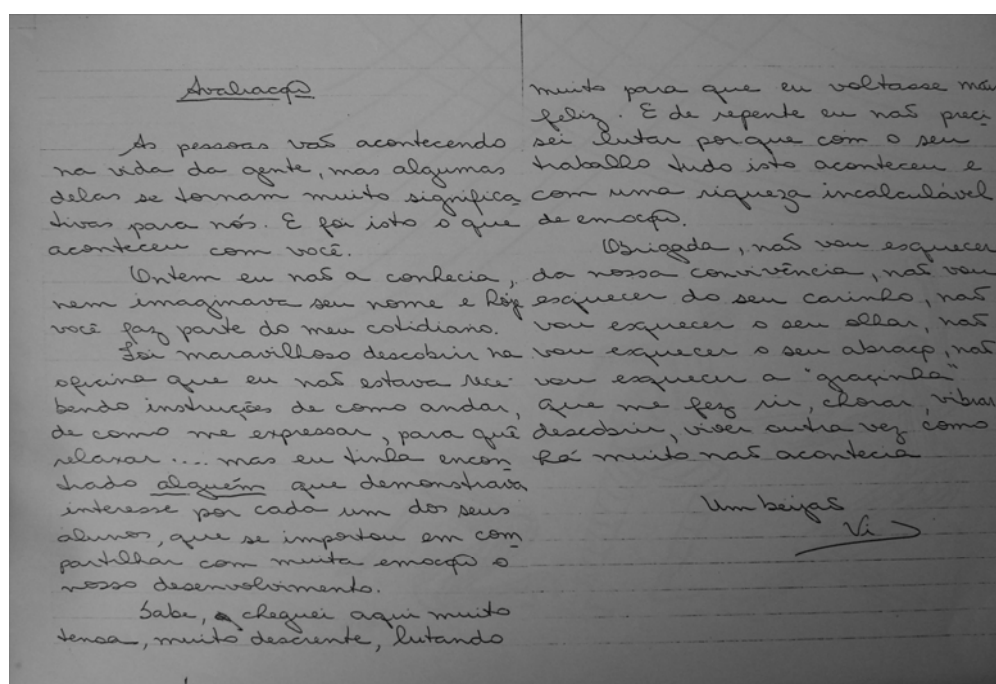 Avaliação
As pessoas vão acontecendo
na vida da gente, mas algumas
delas se tornam muito significa
tivas para nós. E foi isto o que
aconteceu com você.
Ontem eu não a conhecia,
nem imaginava seu nome e hoje
você faz parte do meu cotidiano.
Foi maravilhoso descobrir na
oficina que eu não estava rece-
bendo instruções de como andar,
de como me expressar, para quê
relaxar .... mas eu tinha encon
trado alguém que demonstrava
interesse por cada um dos seus
alunos, que se importou em com
partilhar com muita emoção o
nosso desenvolvimento.
Sabe, cheguei aqui muito
tensa, muito descrente, lutando
muito para que eu voltasse mais
feliz. E de repente eu não preci
sei lutar porque com o seu
trabalho tudo isto aconteceu e
com uma riqueza incalculável
de emoção.
Obrigada, não vou esquecer
da nossa convivência, não vou
esquecer do seu carinho, não
vou esquecer o seu olhar, não
vou esquecer o seu abraço, não
vou esquecer a "graçinha"
que me fez rir, chorar, vibrar
descobrir, viver outra vez como
há muito não acontecia
Um beijão
Vi